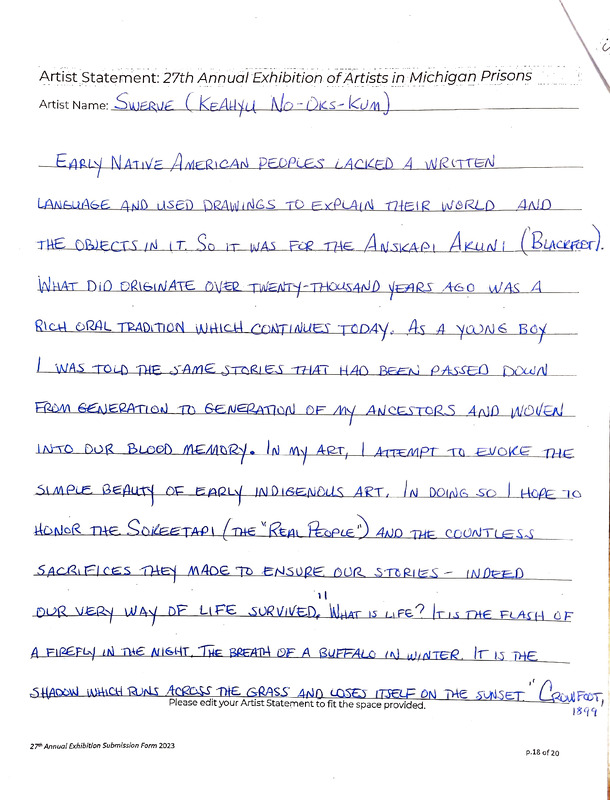 Artist Statement: 27th Annual Exhibition of Artists in Michigan Prisons
Artist Name: SWERVE (KEAHYU NO-OKS-KUM)
EARLY NATIVE AMERICAN PEOPLES LACKED A WRITTEN
LANGUAGE AND USED DRAWINGS TO EXPLAIN THEIR WORLD AND
THE OBJECTS IN IT. SO IT WAS FOR THE ANSKAPI AKUNI (BLACKFEET).
WHAT DID ORIGINATE OVER TWENTY-THOUSAND YEARS AGO WAS A
RICH ORAL TRADITION WHICH CONTINUES TODAY. AS A YOUNG BOY
I WAS TOLD THE SAME STORIES THAT HAD BEEN PASSED DOWN
FROM GENERATION TO GENERATION OF MY ANCESTORS AND WOVEN
INTO OUR BLOOD MEMORY. IN MY ART, I ATTEMPT TO EVOKE THE
SIMPLE BEAUTY OF EARLY INDIGENOUS ART. IN DOING SO I HOPE TO
HONOR THE SOKEETAPI (THE "REAL PEOPLE") AND THE COUNTLESS
SACRIFICES THEY MADE TO ENSURE OUR STORIES - INDEED
OUR VERY WAY OF LIFE SURVIVED. "WHAT IS LIFE? IT IS THE FLASH OF
A FIREFLY IN THE NIGHT. THE BREATH OF A BUFFALO IN WINTER. IT IS THE
SHADOW WHICH RUNS ACROSS THE GRASS AND LOSES ITSELF ON THE SUNSET." CROWFOOT,
1899
Please edit your Artist Statement to fit the space provided.
27th Annual Exhibition Submission Form 2023
p.18 of 20